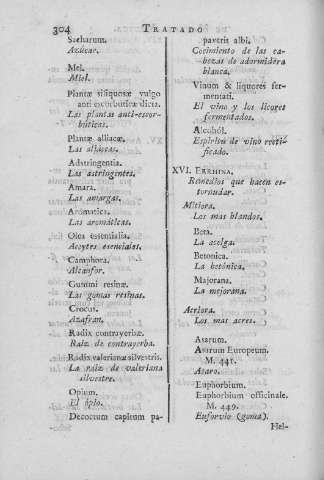 304 TRATADO
Saccharum.
Azúcar.
Mel.
Miel.
Plantæ siliquosæ vulgo
anti escorbuticæ dictæ.
Las plantas anti-escor-
búticas.
Plantæ alliaceæ.
Las alliáceas.
Adstringentia.
Las astringentes.
Amara.
Las amargas.
Aromatica.
Las aromáticas.
Olea essentialia.
Aceytes esenciales.
Camphora.
Alcanfor.
Gummi resinæ.
Las gomas resinas.
Crocus.
Azafran.
Radix contrayerbæ.
Raiz de contrayerba.
Radix valerianæ silvestris.
La raiz de valeriana
silvestre.
Opium.
El ópio.
Decoctum capitum pa-
paveris albi.
Cocimiento de las ca-
bezas de adormidera
blanca.
Vinum & liquores fer-
mentati.
El vino y los licores
fermentados.
Alcohól.
Espiritu de vino recti-
ficado.
XVI. ERRHINA.
Remedios que hacen es-
tornudar.
Mitiora.
Los mas blandos.
Beta.
La acelga.
Betonica.
La betónica.
Majorana.
La mejorana.
Acriora.
Los mas acres.
Asarum.
Asarum Europeum.
M. 441.
Asaro.
Euphorbium.
Euphorbium officinale.
M. 449.
Euforvio (goma).
Hel-